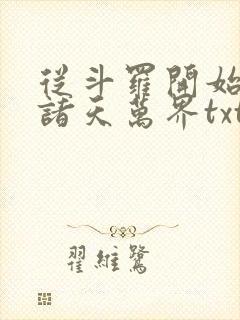 從斗羅開始
諸天萬界txt
翟維鷺